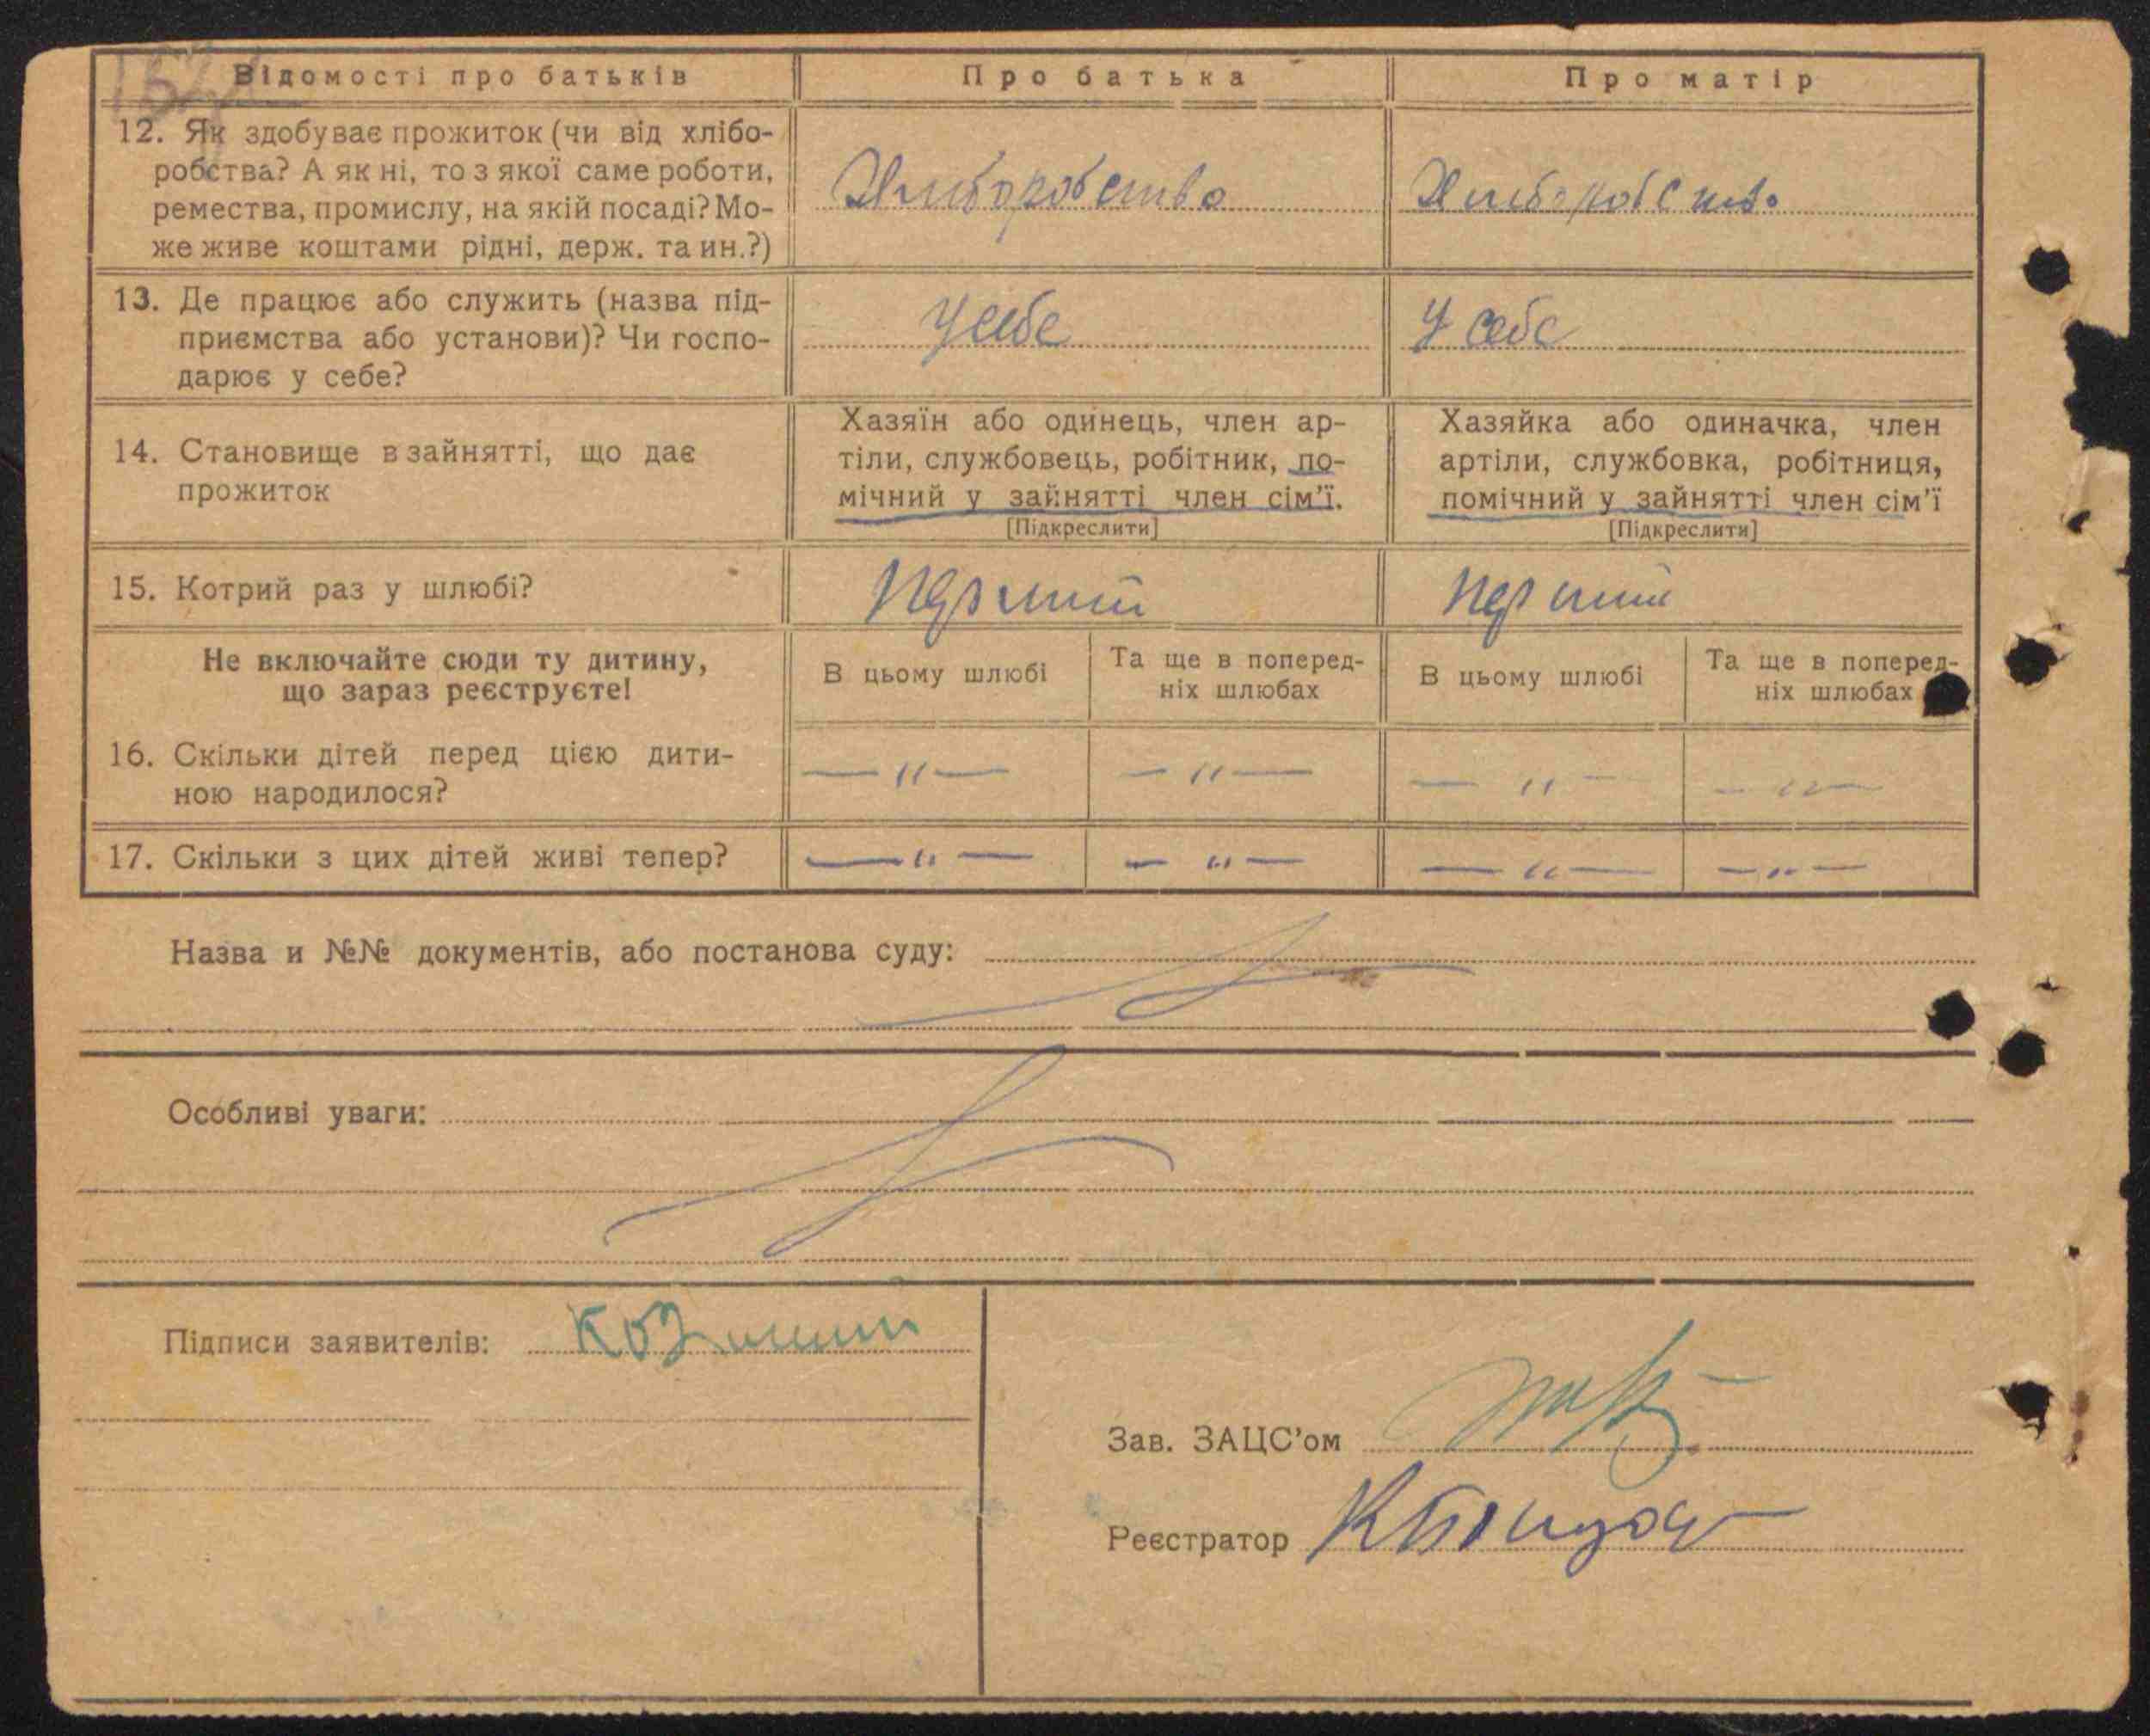 Відомості про батьків
Про батька
Про матір
12. Як здобуває прожиток (чи від хлібо-
робства? А як ні, то з якої саме роботи,
ремества, промислу, на якій посаді? Мо-
же живе коштами рідні, держ. та ин.?)
Хліборобство
Хліборобство
13. Де працює або служить (назва під-
приємства або установи)? Чи госпо-
дарює у себе?
У себе
У себе
14. Становище в зайнятті, що дає
прожиток
Хазяїн або одинець, член ар-
тіли, службовець, робітник, по-
мічний у зайнятті член сім'ї.
[Підкреслити]
Хазяйка або одиначка, член
артіли, службовка, робітниця,
помічний у зайнятті член сім'ї
[Підкреслити]
15. Котрий раз у шлюбі?
Перший
Перший
Не включайте сюди ту дитину,
що зараз реєструєте!
В цьому шлюбі
Та ще в поперед-
ніх шлюбах
В цьому шлюбі
Та ще в поперед-
ніх шлюбах
16. Скільки дітей перед цією дити-
ною народилося?
— " —
— " —
— " —
— " —
17. Скільки з цих дітей живі тепер?
— " —
— " —
— " —
— " —
Назва и №№ документів, або постанова суду:
Особливі уваги:
Підписи заявителів:
Зав. ЗАЦС'ом
Реєстратор